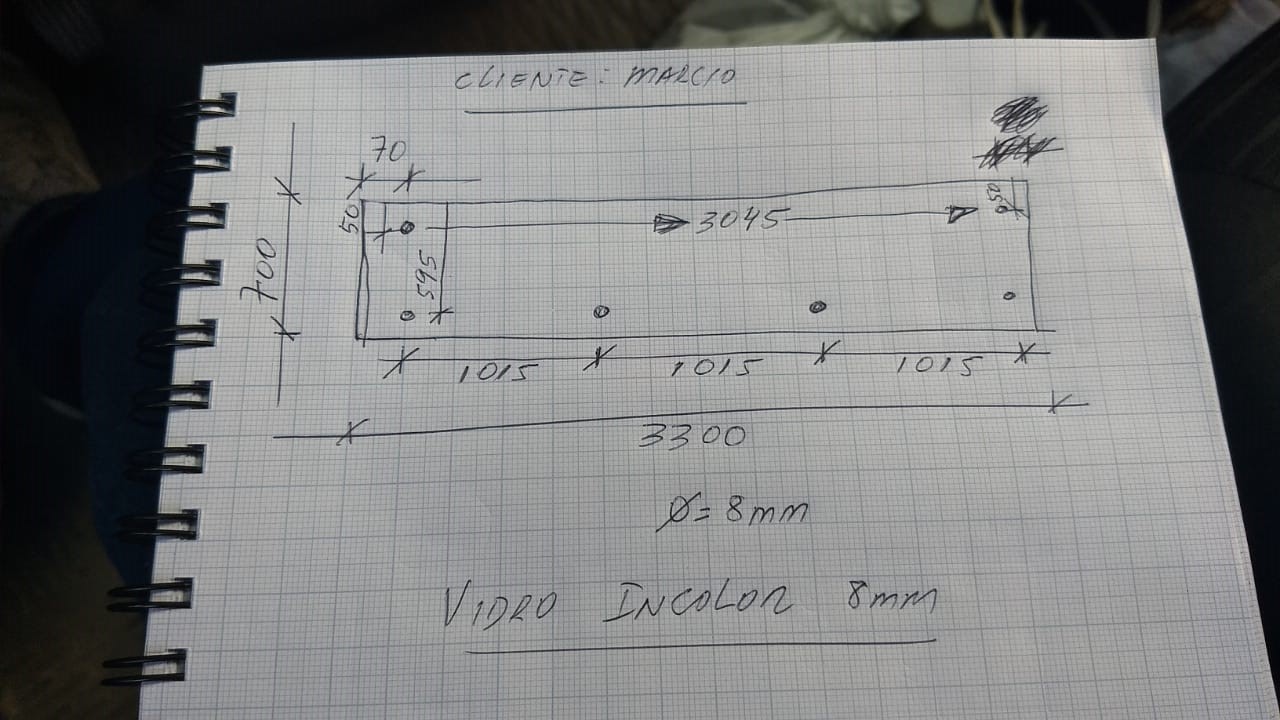 CLIENTE: MARCIO
70
50
3045
050
700
595
1015 1015 1015
3300
Ø= 8mm
VIDRO INCOLOR 8mm